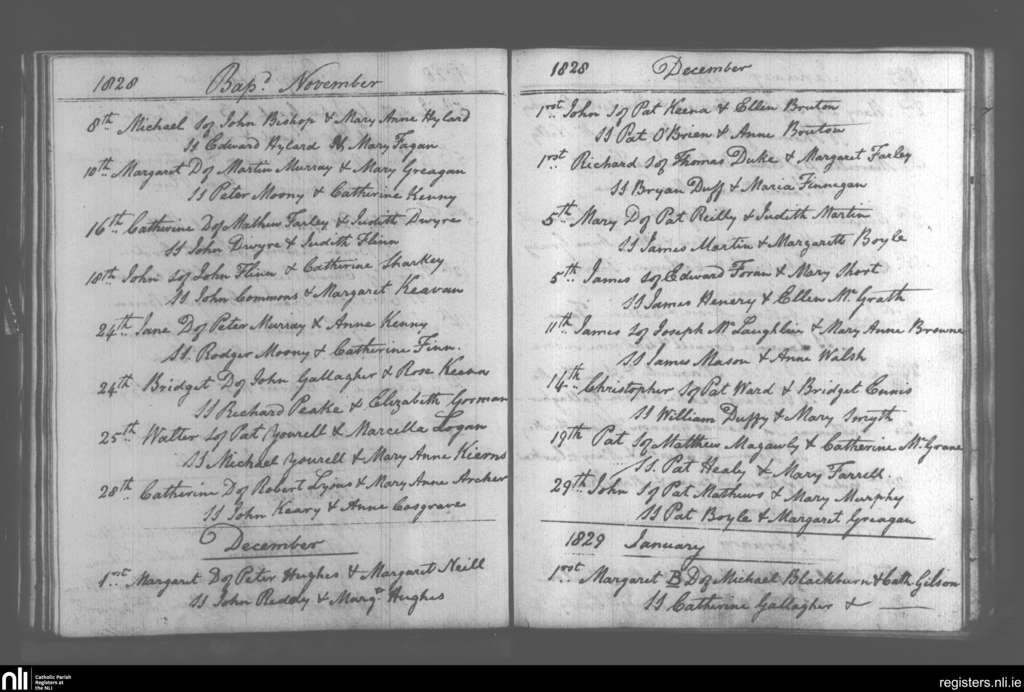 1828 Bapd. November
8th Michael Sof John Bishop & Mary Anne Hylard
SS Edward Hylard & Mary Fagan
10th Margaret Dof Martin Murray & Mary Greagan
SS Peter Moony & Catherine Kenny
16th Catherine Dof Mathew Farley & Judith Dwyre
SS John Dwyre & Judith Flinn
18th John Sof John Flinn & Catherine Sharkey
SS John Commons & Margaret Keavan
24th Jane Dof Peter Murray & Anne Kenny
SS. Rodger Moony & Catherine Finn.
24th Bridget Dof John Gallagher & Rose Keena
SS Richard Peake & Elizabeth Gorman
25th Walter Sof Pat Yourell & Marcella Logan
SS Michael Yourell & Mary Anne Kierns
28th Catherine Dof Robert Lyons & Mary Anne Archer
SS John Keary & Anne Cosgrave
December
1rst Margaret Dof Peter Hughes & Margaret Neill
SS John Reddy & Margt Hughes
1828 December
1rst John Sof Pat Keena & Ellen Bruton
SS Pat O'Brien & Anne Bruton
1rst Richard Sof Thomas Duke & Margaret Farley
SS Bryan Duff & Maria Finnegan
5th Mary Dof Pat Reilly & Judith Martin
SS James Martin & Margarett Boyle
5th James Sof Edward Foran & Mary Short
SS James Henery & Ellen McGrath
11th James Sof Joseph McLaughlin & Mary Anne Browne
SS James Mason & Anne Walsh
14th Christopher Sof Pat Ward & Bridget Cunis
SS William Duffy & Mary Smyth
19th Pat Sof Matthew Magawly & Catherine McGoane
SS. Pat Healy & Mary Farrell.
29th John Sof Pat Mathews & Mary Murphy
SS Pat Boyle & Margaret Greagan
1829 January
1rst Margaret B Dof Michael Blackburn & Cath Gilson
SS Catherine Gallagher & —
nli Catholic Parish
Registers at
the NLI
registers.nli.ie